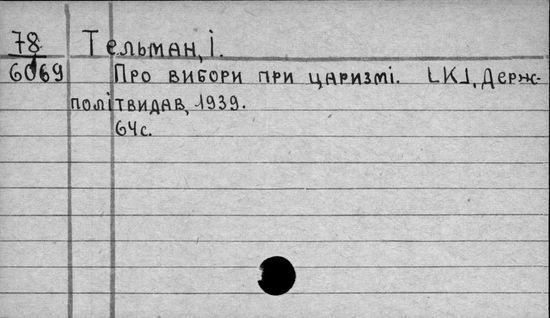 78 Тельман, І.
6069 Про вибори при царизмі. [К], Держ-
політвидав, 1939.
64с.